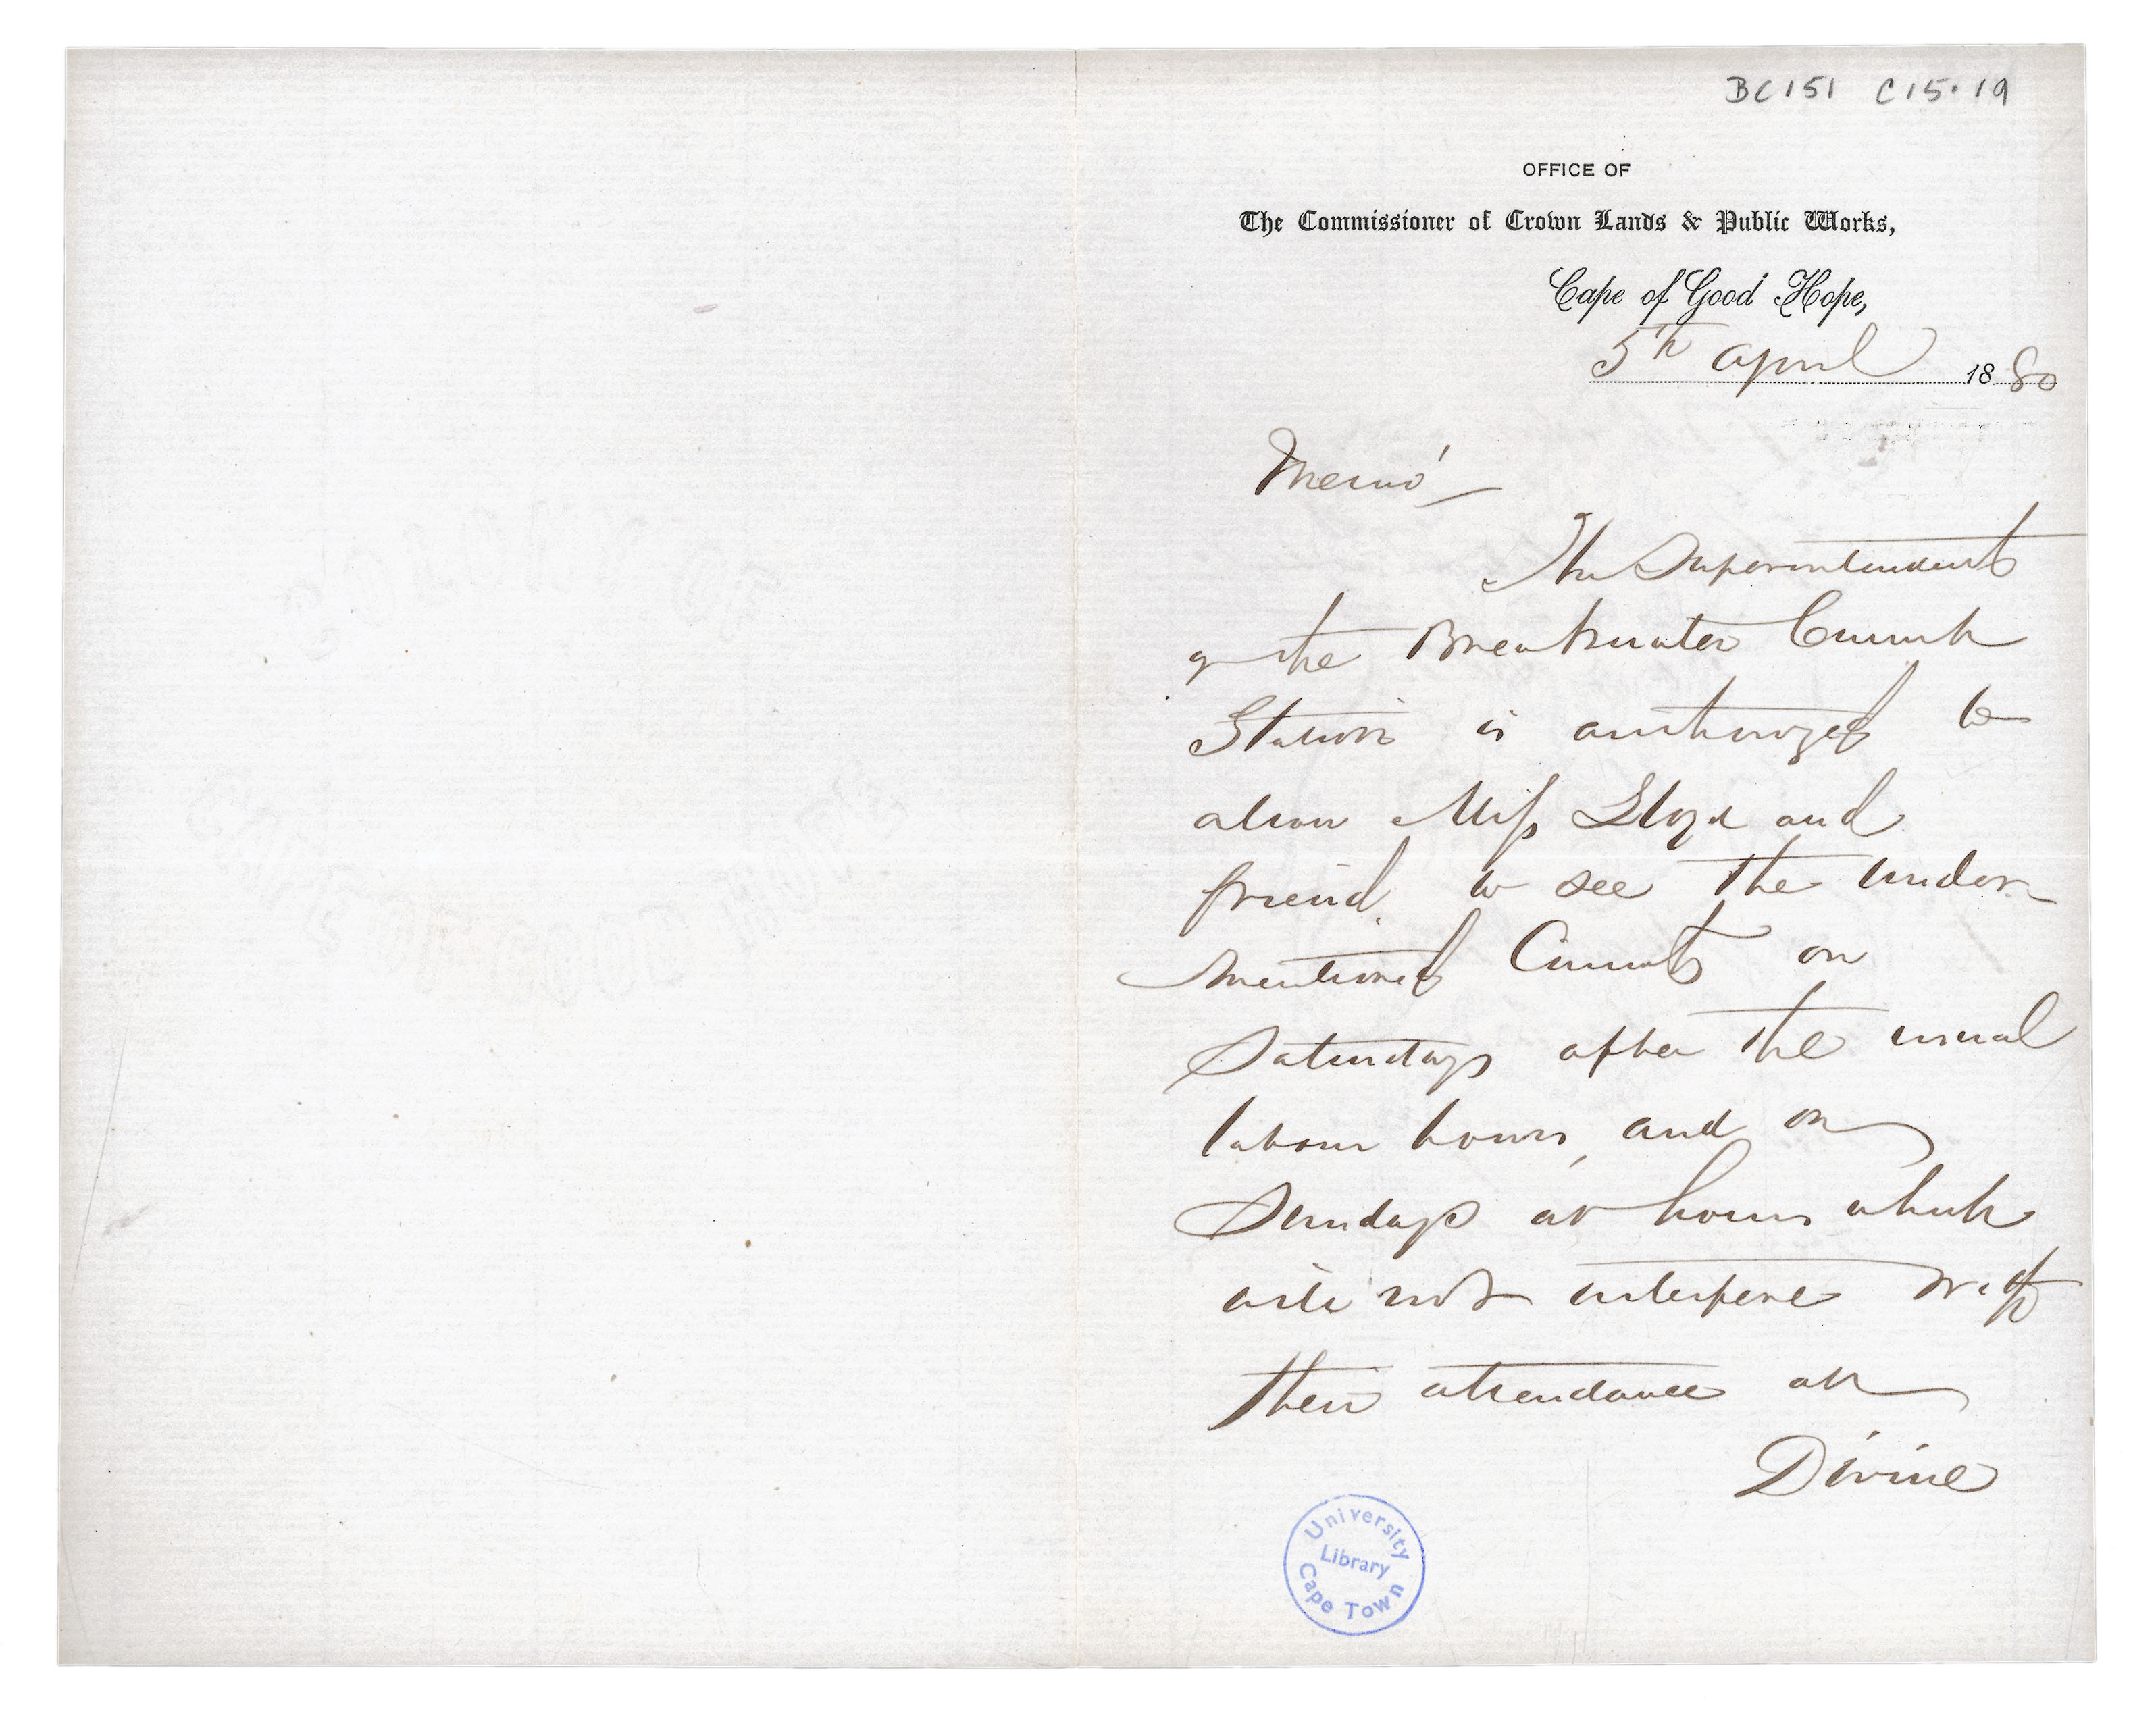 BC151 C15.19
OFFICE OF
The Commissioner of Crown Lands & Public Works,
Cape of Good Hope,
5th April 1880
Memo
The Superintendent
of the Breakwater Convict
Station is authorized to
allow Miss Lloyd and
friend, to see the under-
mentioned Convicts on
Saturdays after the usual
labour hours, and on
Sundays at hours which
will not interfere with
their attendance at
Divine
University
Library
Cape Town